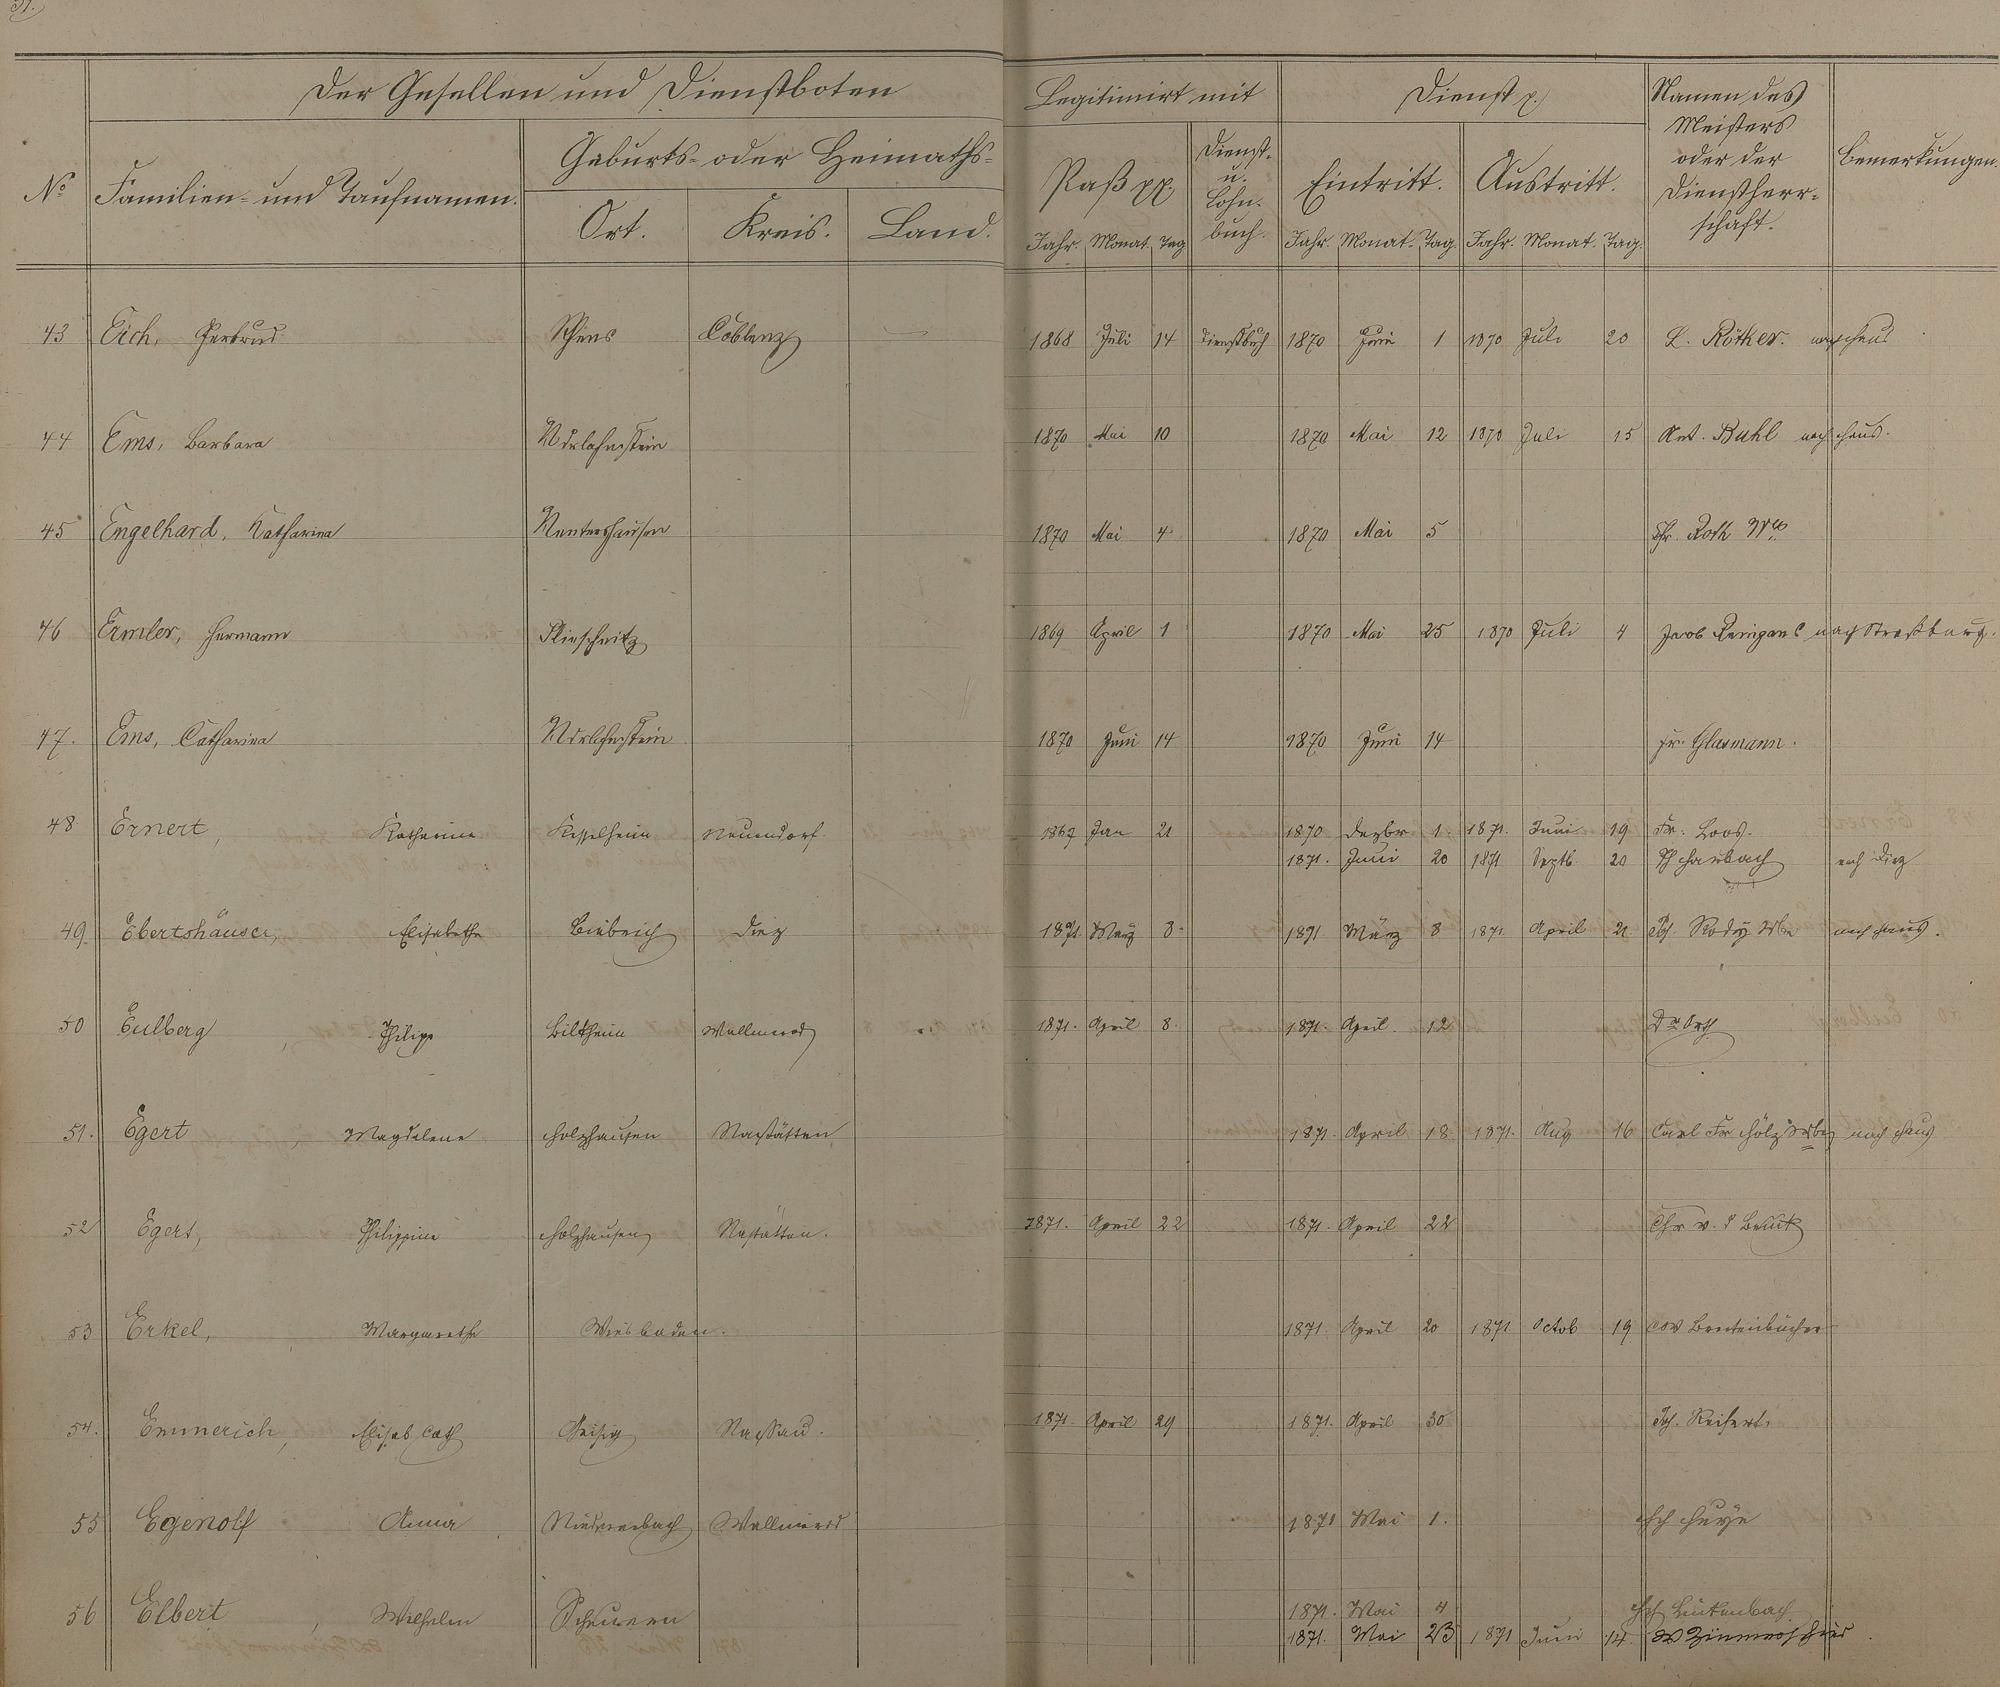 Der Gesellen und Dienstboten
Legitimirt mit
Dienst p.
Namen des Meisters oder der Dienstherr=schaft.
Bemerkungen.
No
Familien= und Taufnamen.
Geburts= oder Heimaths=
Ort. Kreis. Land.
Paß pp.
Dienst- u. Lohn-buch.
Eintritt. Austritt.
Jahr. Monat. Tag Jahr. Monat. Tag. Jahr. Monat. Tag.
43 Eich, Gertrud Rhens Coblenz — 1868 Juli 14 Dienstbuch 1870 Juni 1 1870 Juli 20 L. Röther. nach Haus
44 Ems, Barbara Ndrlahnstein 1870 Mai 10 1870 Mai 12 1870 Juli 15 Ant. Buhl nach Haus.
45 Engelhard, Katharina Nentershausen 1870 Mai 4 1870 Mai 5 Chr. Roth Wwe
46 Ermler, Hermann 1869 April 1 1870 Mai 25 1870 Juli 4 Jacob nach Straßburg.
47. Ems, Catharina Ndrlahnstein 1870 Juni 14 1870 Juni 14 Fr. Glasmann.
48 Ernert, Katharine Kesselheim Neuendorf 1867 Jan 21 1870 Dezbr 1. 1871. Juni 19 Fr. Loos.
1871. Juni 20 1871 Septb. 20 nach Diez
49. Ebertshäuser, Elisabethe Biebrich Diez 1871 März 8. 1871 März 8 1871 April 21 Rody Wwe nach Haus.
50 Eulberg, Philipp Bilkheim Wallmerod 1871. April 8. 1871. April. 12 Dr Orth
51. Egert, Magdalene Holzhausen Nastätten 1871. April 18 1871. Aug 16 Carl Fr nach Haus
52 Egert, Philippine Holzhausen Nastätten. 1871. April 22 1871. April 22 Chr v.
53 Erkel, Margarethe Wiesbaden. 1871. April 20 1871 Octob 19
54. Emmerich, Elisab Cath Geisig Nassau. 1871. April 29 1871. April 30 Reifert.
55 Egenolf Anna Wallmerod 1871 Mai 1.
56 Elbert, Wilhelm Scheuern 1871. Mai 4 Linkenbach
1871. Mai 23 1871 Juni 14. W Zimmerschied